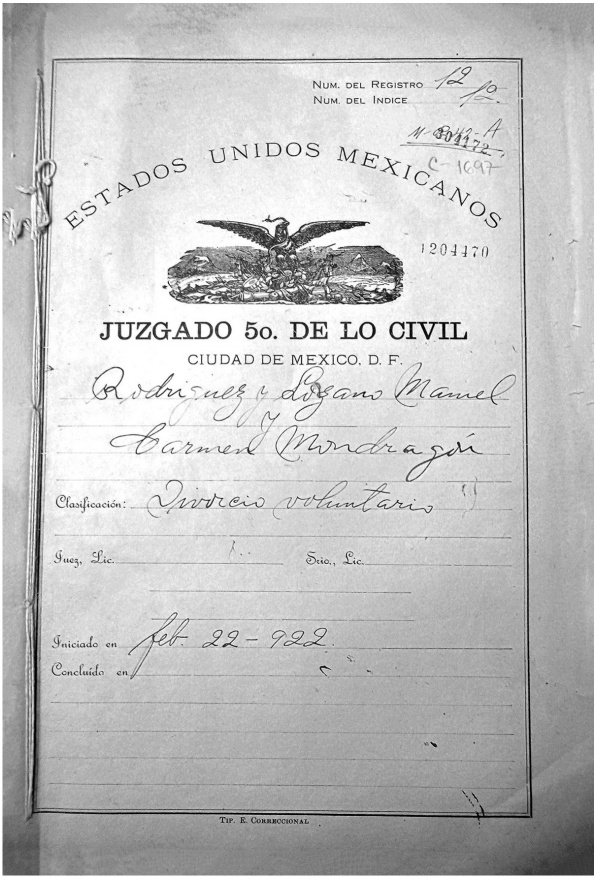 NUM. DEL REGISTRO 12
NUM. DEL INDICE 1º
C-1697
ESTADOS UNIDOS MEXICANOS
1204470
JUZGADO 5o. DE LO CIVIL
CIUDAD DE MEXICO, D. F.
Rodriguez y Lozano Manuel
y
Carmen Mondragón
Clasificación: Divorcio voluntario
Juez, Lic. Srio., Lic.
Iniciado en feb. 22-922.
Concluido en
TIP. E. CORRECCIONAL